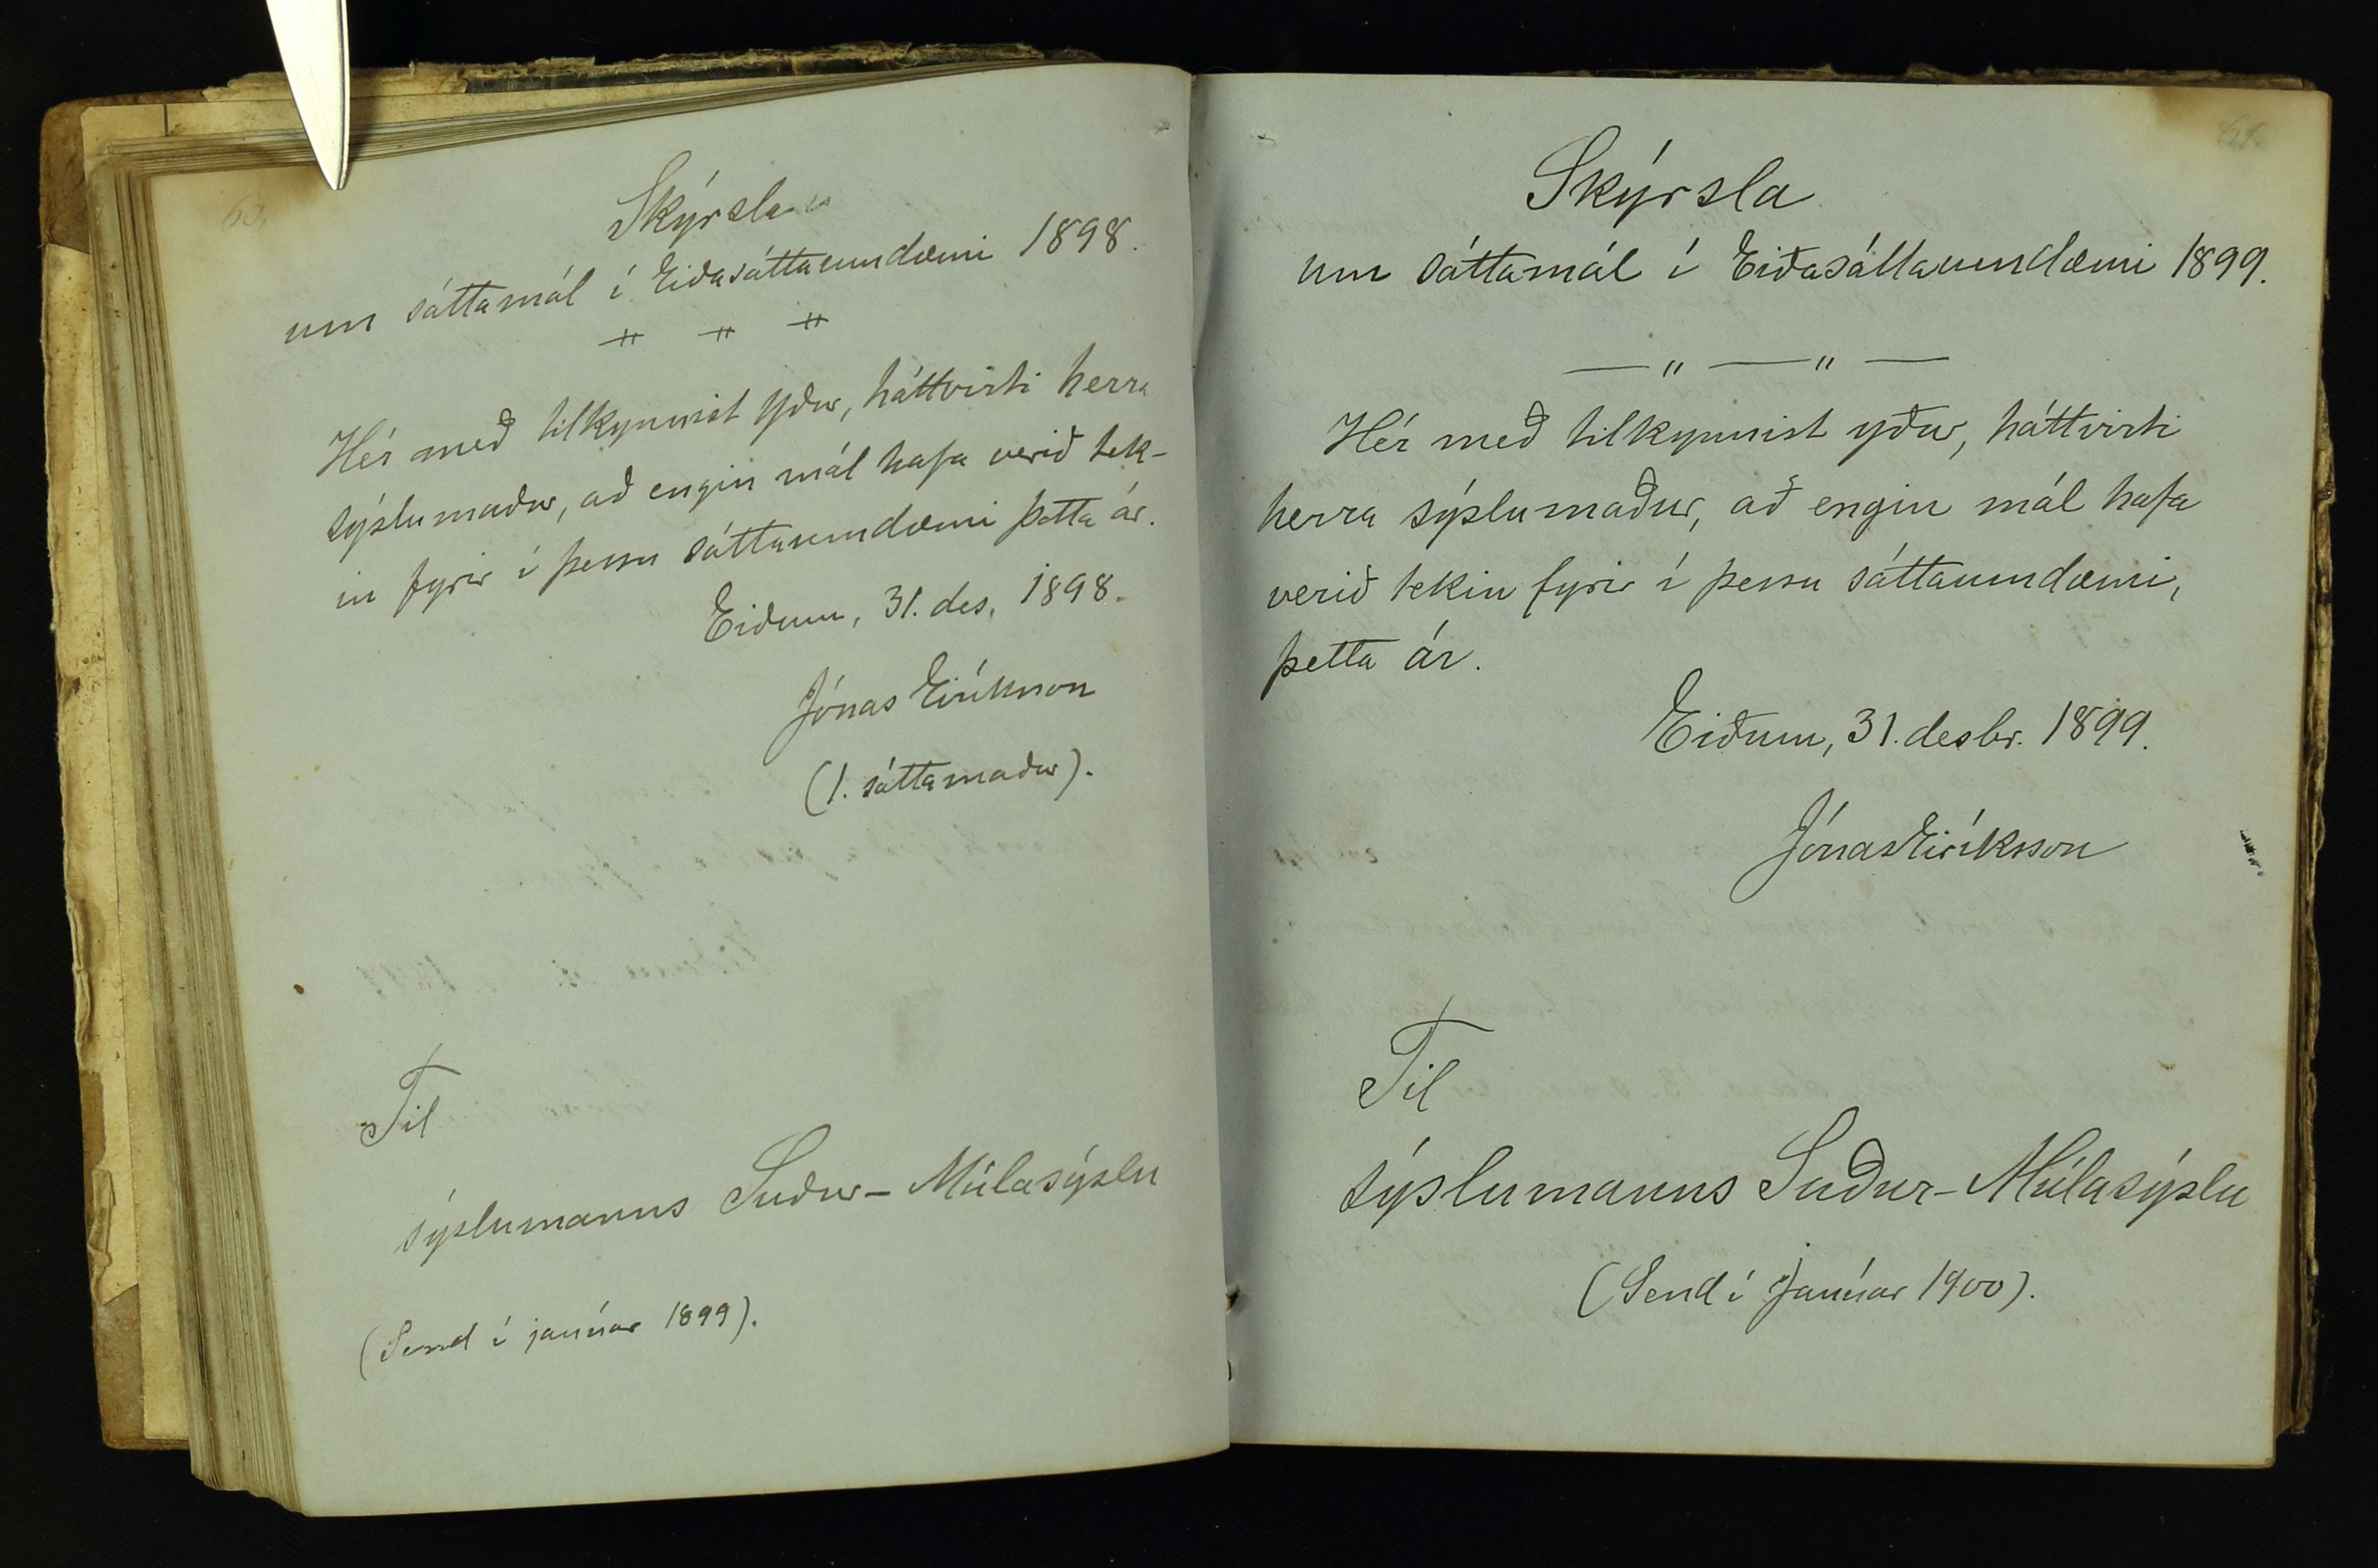 60.
Skýrsla
um sáttamál í Eiðasáttaumdæmi 1898.
Hér með tilkynnist yður, háttvirti herra
sýslumaður, að engin mál hafa verið tek-
in fyrir í þessu sáttaumdæmi þetta ár.
Eiðum, 31. des. 1898.
Jónas Eiríksson
(1. sáttamaður).
Til
sýslumanns Suður-Múlasýslu
(Send í janúar 1899).
61.
Skýrsla
um sáttamál í Eiðasáttaumdæmi 1899.
— " — " —
Hér með tilkynnist yður, háttvirti
herra sýslumaður, að engin mál hafa
verið tekin fyrir í þessu sáttaumdæmi,
þetta ár.
Eiðum, 31. desbr. 1899.
Jónas Eiríksson
Til
sýslumanns Suður-Múlasýslu
(Send í janúar 1900).